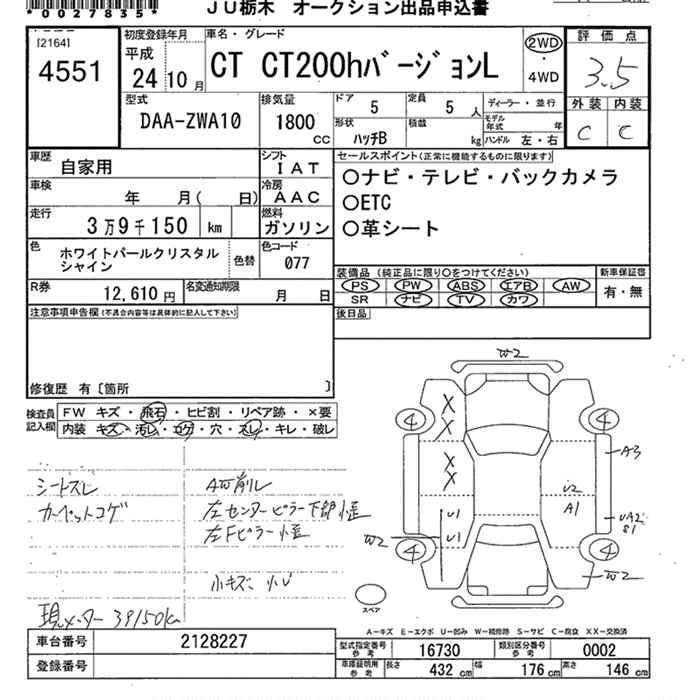 *0027835*
JU栃木 オークション出品申込書
[2164]
4551
初度登録年月
平成
24年10月
車名・グレード
CT CT200hバージョンL
2WD
・
4WD
評価点
3.5
外装 内装
C C
型式
DAA-ZWA10
排気量
1800
cc
ドア 5
定員 5 人
ディーラー・並行
形状 ハッチB
積載 kg
モデル年式 年
ハンドル 左・右
車歴 自家用
シフト IAT
車検 年 月( 日)
冷房 AAC
走行 3万9千150 km
燃料 ガソリン
色 ホワイトパールクリスタル
シャイン
色替
色コード 077
R券 12,610円
名変通知期限 月 日
セールスポイント(正常に機能するものに限ります)
○ナビ・テレビ・バックカメラ
○ETC
○革シート
装備品(純正品に限り○をつけてください)
新車保証書
PS PW ABS エアB AW
有・無
SR ナビ TV カワ
後日品
注意事項申告欄(不具合内容等は具体的に記入して下さい)
修復歴 有〔箇所 〕
検査員
記入欄
FW キズ・飛石・ヒビ割・リペア跡・×要
内装 キズ・汚れ・コゲ・穴・スレ・キレ・破レ
シートスレ
カーペットコゲ
4W削レ
左センターピラー下部小歪
左Fピラー小歪
小キズ 小U
現メーター 39150km
W2
4
X
X
4
X
X
A3
U2
A1
U1
U1
UA2
S1
W2
4
4
W2
スペア
A-キズ E-エクボ U-凹み W-補修跡 S-サビ C-腐食 XX-交換済
車台番号 2128227
登録番号
型式指定番号
参考
16730
類別区分番号
参考
0002
車庫証明用
参考
長さ 432 cm
幅 176 cm
高さ 146 cm